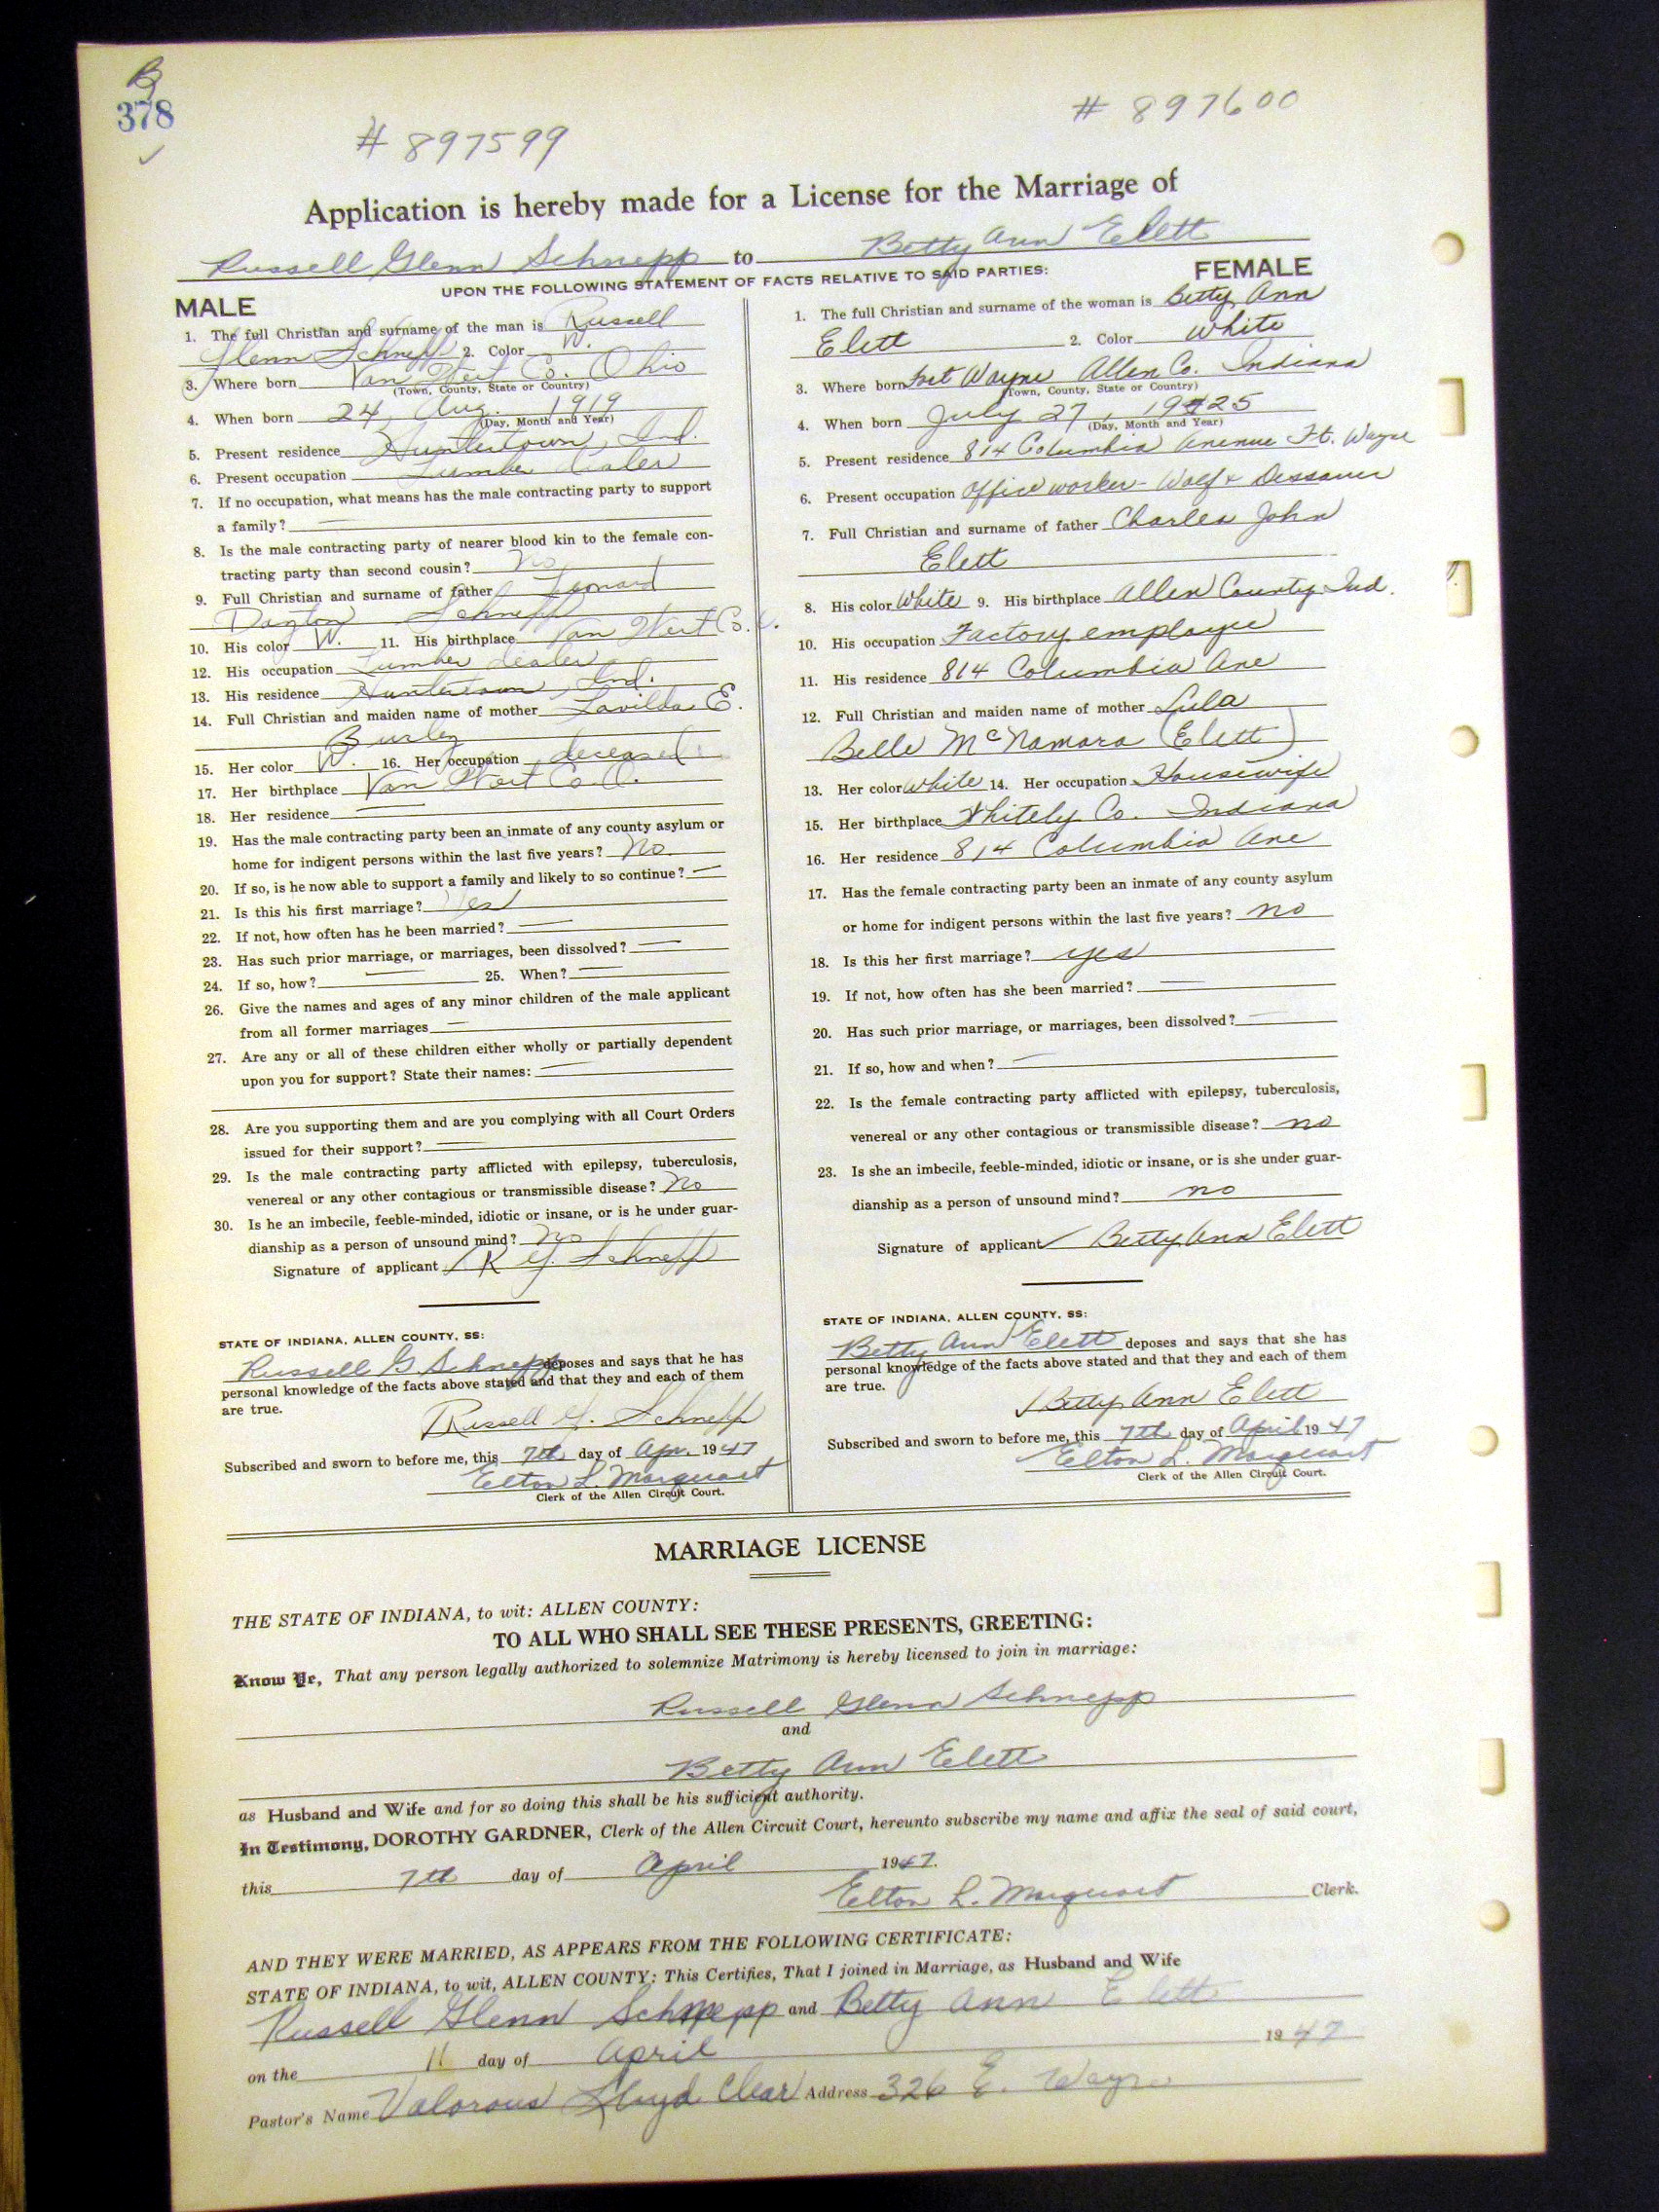 B
378
# 897599
# 897600
Application is hereby made for a License for the Marriage of
Russell Glenn Schnepp to Betty Ann Elett
UPON THE FOLLOWING STATEMENT OF FACTS RELATIVE TO SAID PARTIES:
MALE
1. The full Christian and surname of the man is Russell
Glenn Schnepp 2. Color W.
3. Where born Van Wert Co. Ohio
(Town, County, State or Country)
4. When born 24, Aug. 1919
(Day, Month and Year)
5. Present residence Huntertown, Ind.
6. Present occupation Lumber Dealer
7. If no occupation, what means has the male contracting party to support
a family?
8. Is the male contracting party of nearer blood kin to the female con-
tracting party than second cousin? No
9. Full Christian and surname of father Leonard
Dayton Schnepp
10. His color W. 11. His birthplace Van Wert Co. O.
12. His occupation Lumber dealer
13. His residence Huntertown, Ind.
14. Full Christian and maiden name of mother Lavilda E.
Burley
15. Her color W. 16. Her occupation deceased
17. Her birthplace Van Wert Co. O.
18. Her residence
19. Has the male contracting party been an inmate of any county asylum or
home for indigent persons within the last five years? No
20. If so, is he now able to support a family and likely to so continue?
21. Is this his first marriage? Yes
22. If not, how often has he been married?
23. Has such prior marriage, or marriages, been dissolved?
24. If so, how? 25. When?
26. Give the names and ages of any minor children of the male applicant
from all former marriages
27. Are any or all of these children either wholly or partially dependent
upon you for support? State their names:
28. Are you supporting them and are you complying with all Court Orders
issued for their support?
29. Is the male contracting party afflicted with epilepsy, tuberculosis,
venereal or any other contagious or transmissible disease? No
30. Is he an imbecile, feeble-minded, idiotic or insane, or is he under guar-
dianship as a person of unsound mind? No
Signature of applicant R G. Schnepp
STATE OF INDIANA, ALLEN COUNTY, SS:
Russell G. Schnepp deposes and says that he has
personal knowledge of the facts above stated and that they and each of them
are true.
Russell G. Schnepp
Subscribed and sworn to before me, this 7th day of Apr. 1947
Elton L. Marquart
Clerk of the Allen Circuit Court.
FEMALE
1. The full Christian and surname of the woman is Betty Ann
Elett 2. Color White
3. Where born Fort Wayne Allen Co. Indiana
(Town, County, State or Country)
4. When born July 27, 1925
(Day, Month and Year)
5. Present residence 814 Columbia Avenue Ft. Wayne
6. Present occupation Office worker - Wolf & Dessauer
7. Full Christian and surname of father Charles John
Elett
8. His color White 9. His birthplace Allen County Ind.
10. His occupation Factory employee
11. His residence 814 Columbia Ave
12. Full Christian and maiden name of mother Lula
Belle McNamara (Elett)
13. Her color White 14. Her occupation Housewife
15. Her birthplace Whitely Co. Indiana
16. Her residence 814 Columbia Ave
17. Has the female contracting party been an inmate of any county asylum
or home for indigent persons within the last five years? no
18. Is this her first marriage? yes
19. If not, how often has she been married?
20. Has such prior marriage, or marriages, been dissolved?
21. If so, how and when?
22. Is the female contracting party afflicted with epilepsy, tuberculosis,
venereal or any other contagious or transmissible disease? no
23. Is she an imbecile, feeble-minded, idiotic or insane, or is she under guar-
dianship as a person of unsound mind? no
Signature of applicant Betty Ann Elett
STATE OF INDIANA, ALLEN COUNTY, SS:
Betty Ann Elett deposes and says that she has
personal knowledge of the facts above stated and that they and each of them
are true.
Betty Ann Elett
Subscribed and sworn to before me, this 7th day of April 1947
Elton L. Marquart
Clerk of the Allen Circuit Court.
MARRIAGE LICENSE
THE STATE OF INDIANA, to wit: ALLEN COUNTY:
TO ALL WHO SHALL SEE THESE PRESENTS, GREETING:
Know Ye, That any person legally authorized to solemnize Matrimony is hereby licensed to join in marriage:
Russell Glenn Schnepp
and
Betty Ann Elett
as Husband and Wife and for so doing this shall be his sufficient authority.
In Testimony, DOROTHY GARDNER, Clerk of the Allen Circuit Court, hereunto subscribe my name and affix the seal of said court,
this 7th day of April 1947.
Elton L. Marquart Clerk.
AND THEY WERE MARRIED, AS APPEARS FROM THE FOLLOWING CERTIFICATE:
STATE OF INDIANA, to wit, ALLEN COUNTY: This Certifies, That I joined in Marriage, as Husband and Wife
Russell Glenn Schnepp and Betty Ann Elett
on the 11 day of April 1947
Pastor's Name Valorous Lloyd Clear Address 326 E. Wayne